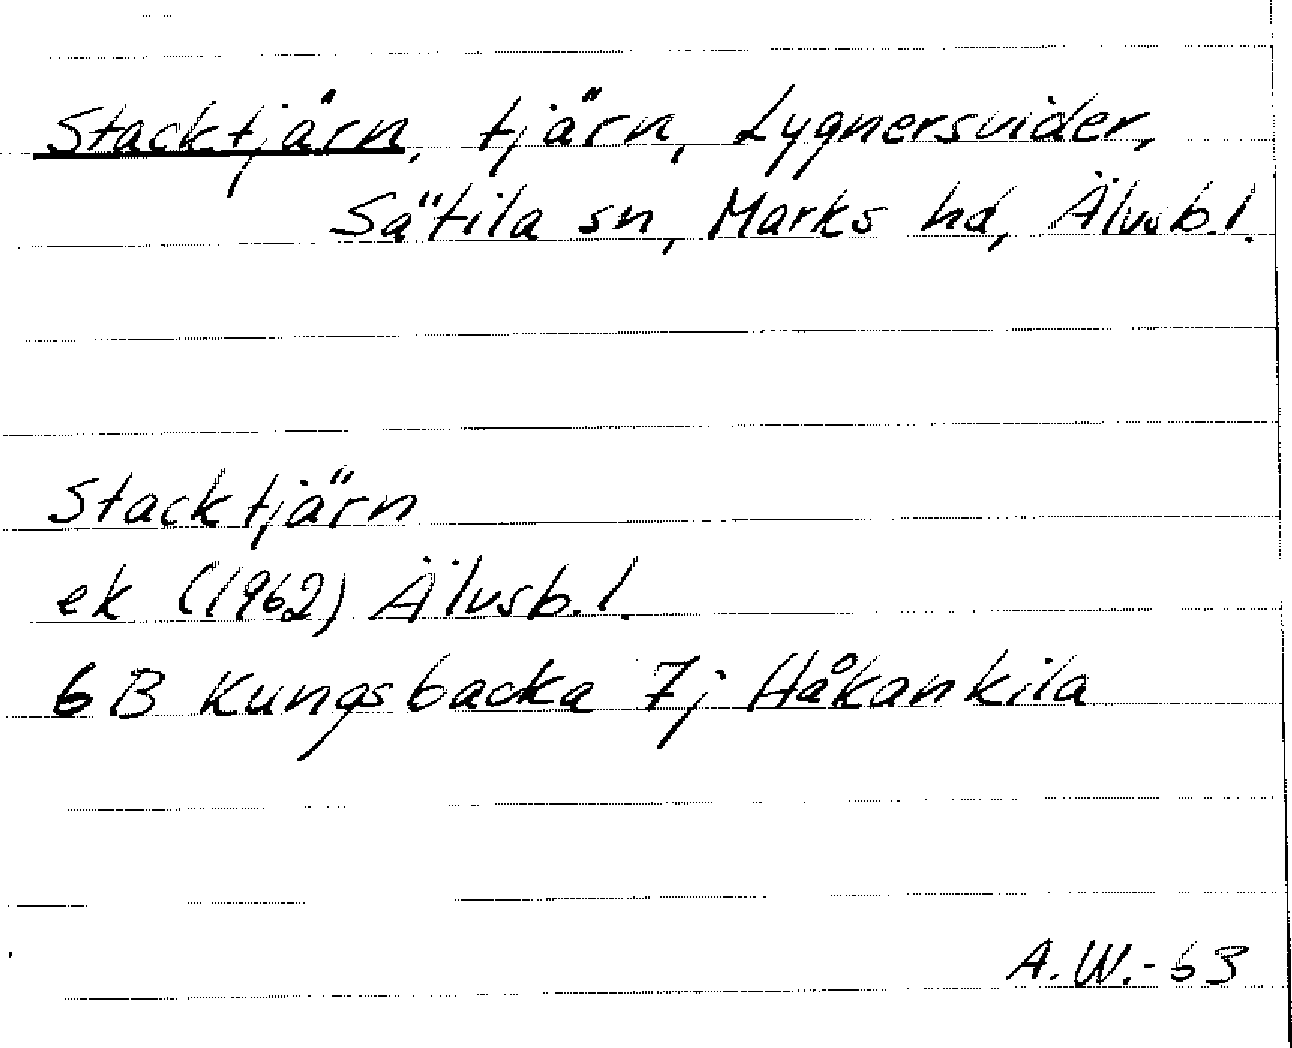 Stacktjärn, tjärn, Lygnersvider,
Sätila sn, Marks hd, Älvsb.l.
Stacktjärn
ek (1962) Älvsb.l.
6B Kungsbacka 7j Håkankila
A.W.-63